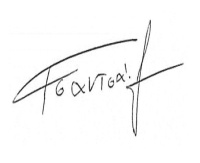 Τσαντσά